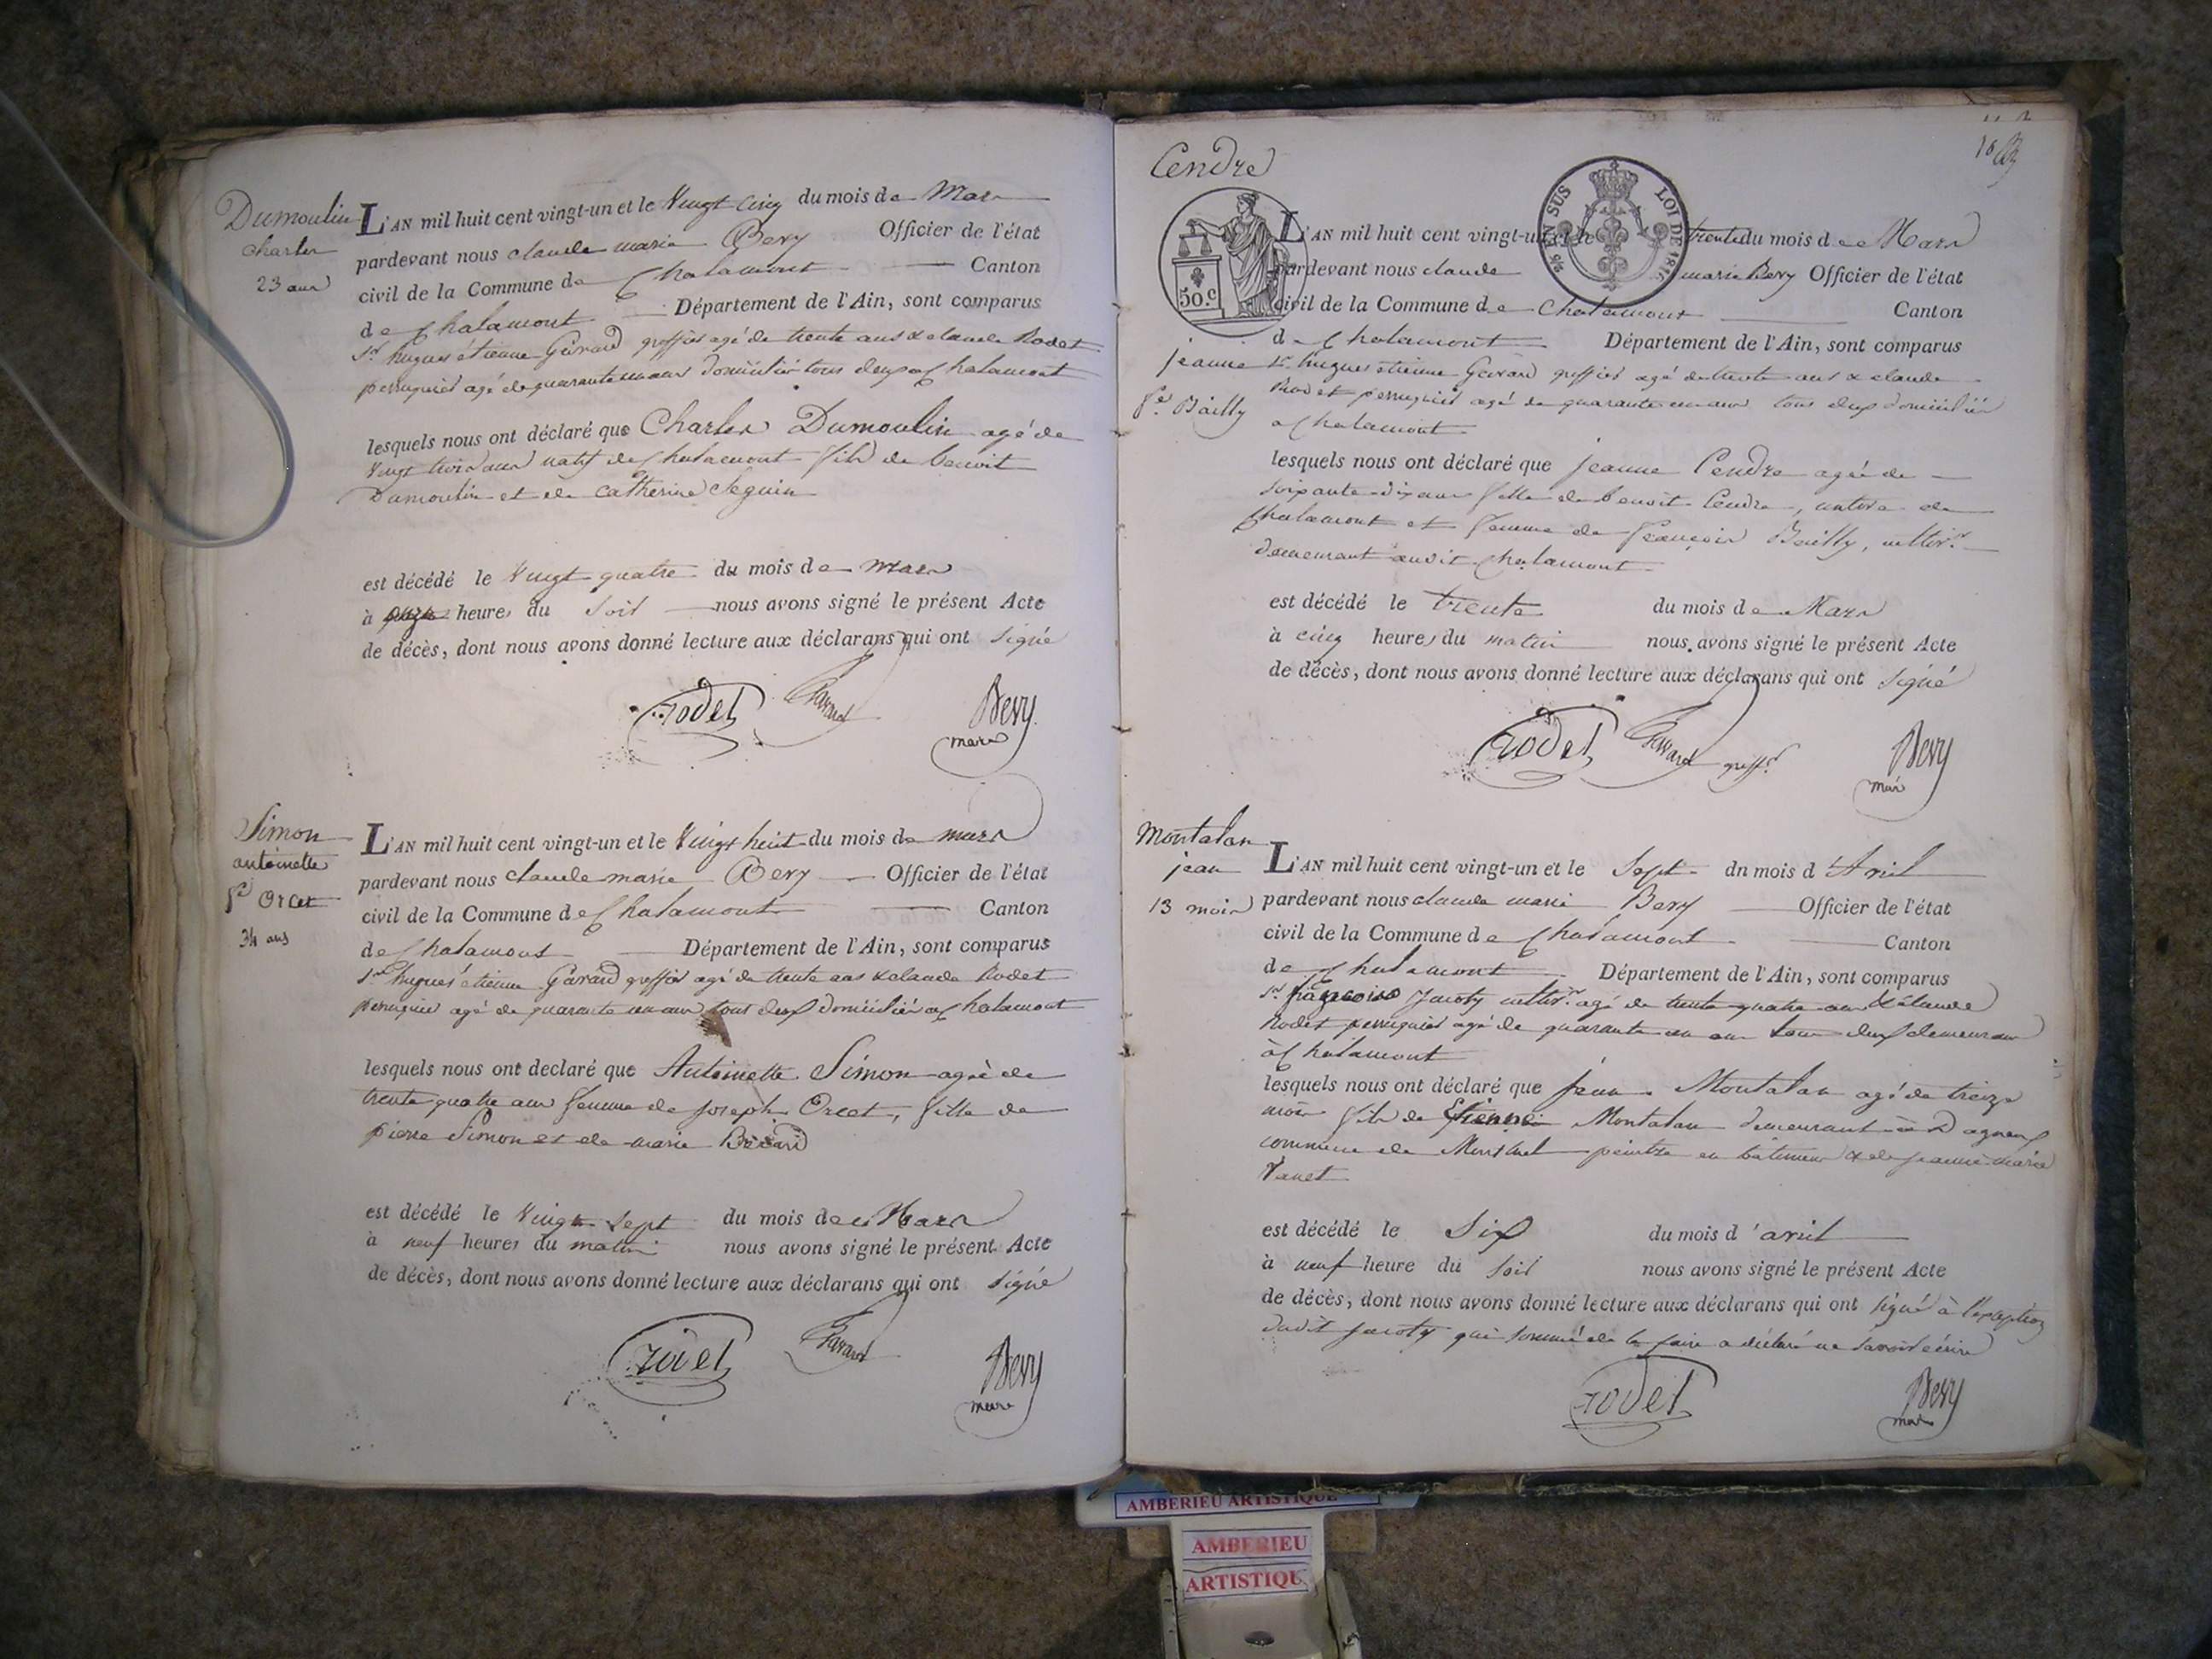 Dumoulin
Charles
23 ans
L'AN mil huit cent vingt-un et le Vingt Cinq du mois de Mars
pardevant nous claude marie Bevy Officier de l'état
civil de la Commune de Chalamont Canton
de Chalamont Département de l'Ain, sont comparus
Sr. hugues étienne Gavard greffier agé de trente ans & claude Rodet
perruquier agé de quarante un ans domicilié tous deux a Chalamont
lesquels nous ont déclaré que Charles Dumoulin agé de
Vingt trois ans natif de Chalamont fils de benoit
Dumoulin et de Catherine Seguin
est décédé le Vingt quatre du mois de mars
à onze heures du soir nous avons signé le présent Acte
de décès, dont nous avons donné lecture aux déclarans qui ont signé
Rodet Gavard Bevy
maire
Simon
antoinette
fe. Orcet
34 ans
L'AN mil huit cent vingt-un et le Vingt huit du mois de mars
pardevant nous claude marie Bevy Officier de l'état
civil de la Commune de Chalamont Canton
de Chalamont Département de l'Ain, sont comparus
Sr. hugues étienne Gavard greffier agé de trente ans & claude Rodet
perruquier agé de quarante un ans tous deux domicilié a Chalamont
lesquels nous ont declaré que Antoinette Simon agée de
trente quatre ans femme de Joseph Orcet, fille de
pierre Simon et de marie
est décédé le Vingt Sept du mois de Mars
à neuf heures du matin nous avons signé le présent Acte
de décès, dont nous avons donné lecture aux déclarans qui ont signé
Rodet Gavard Bevy
maire
16
Cendre
jeanne
fe. Bailly
50.c
EN SUS LOI DE 1816
L'AN mil huit cent vingt-un et le trente du mois de Mars
pardevant nous claude marie Bevy Officier de l'état
civil de la Commune de Chalamont Canton
de Chalamont Département de l'Ain, sont comparus
Sr. hugues étienne Gavard greffier agé de trente ans & claude
Rodet perruquier agé de quarante un ans tous deux domicilié
a Chalamont
lesquels nous ont déclaré que jeanne Cendre agée de
soixante dix ans fille de benoit Cendre, native de
Chalamont et femme de françois Bailly, cultivr.
demeurant audit Chalamont
est décédé le trente du mois de Mars
à cinq heures du matin nous avons signé le présent Acte
de décès, dont nous avons donné lecture aux déclarans qui ont signé
Rodet Gavard greffr. Bevy
maire
Montalan
jean
13 mois
L'AN mil huit cent vingt-un et le Sept dn mois d'Avril
pardevant nous claude marie Bevy Officier de l'état
civil de la Commune de Chalamont Canton
de Chalamont Département de l'Ain, sont comparus
Sr. françois Jacoty cultivr. agé de trente quatre ans & claude
Rodet perruquier agé de quarante un ans tous deux demeurans
à Chalamont
lesquels nous ont déclaré que jean Montalan agé de treize
mois fils de Etienne Montalan demeurant à Dagneux
commune de Montluel peintre en bâtimens & de jeanne marie
est décédé le Six du mois d'avril
à neuf heure du soir nous avons signé le présent Acte
de décès, dont nous avons donné lecture aux déclarans qui ont signé à l'exception
dudit Jacoty qui sommé de le faire a déclaré ne savoir écrire
Rodet Bevy
maire
AMBERIEU ARTISTIQUE
AMBERIEU
ARTISTIQU